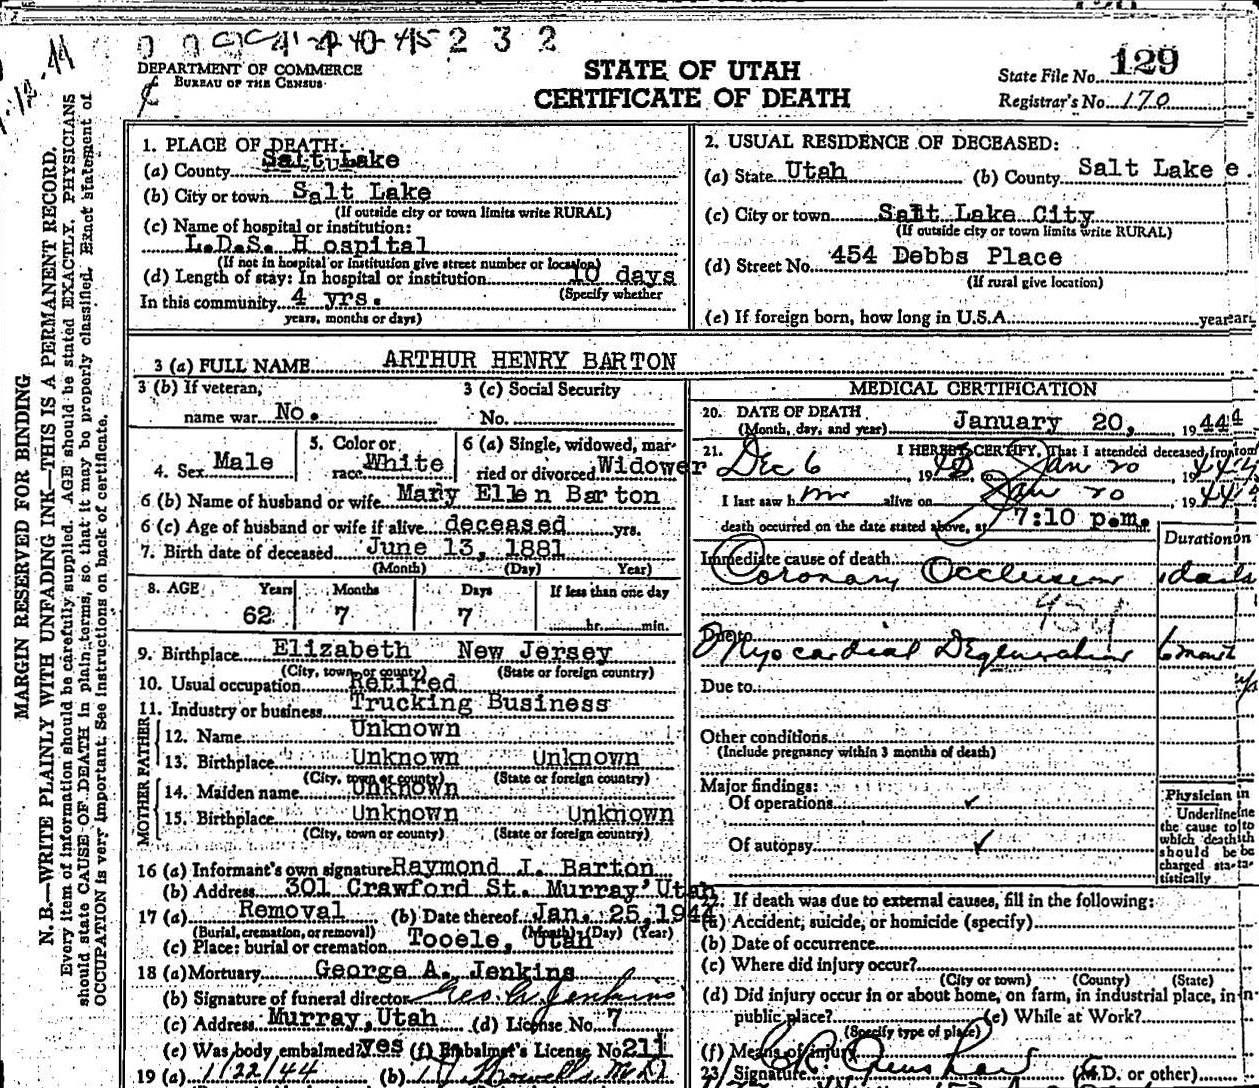 129
STATE OF UTAH
CERTIFICATE OF DEATH
DEPARTMENT OF COMMERCE
BUREAU OF THE CENSUS
State File No. 129
Registrar's No. 170
MARGIN RESERVED FOR BINDING
N. B.—WRITE PLAINLY WITH UNFADING INK—THIS IS A PERMANENT RECORD.
Every item of information should be carefully supplied. AGE should be stated EXACTLY. PHYSICIANS
should state CAUSE OF DEATH in plain terms, so that it may be properly classified. Exact statement of
OCCUPATION is very important. See instructions on back of certificate.
1. PLACE OF DEATH:
(a) County Salt Lake
(b) City or town Salt Lake
(If outside city or town limits write RURAL)
(c) Name of hospital or institution:
L.D.S. H ospital
(If not in hospital or institution give street number or location)
(d) Length of stay: In hospital or institution 10 days
(Specify whether
In this community 4 yrs.
years, months or days)
2. USUAL RESIDENCE OF DECEASED:
(a) State Utah (b) County Salt Lake
(c) City or town Salt Lake City
(If outside city or town limits write RURAL)
(d) Street No. 454 Debbs Place
(If rural give location)
(e) If foreign born, how long in U.S.A. years
3 (a) FULL NAME ARTHUR HENRY BARTON
3 (b) If veteran, 3 (c) Social Security
name war No. No.
4. Sex Male
5. Color or
race White
6 (a) Single, widowed, mar-
ried or divorced Widower
6 (b) Name of husband or wife Mary Ellen Barton
6 (c) Age of husband or wife if alive deceased yrs.
7. Birth date of deceased June 13, 1881
(Month) (Day) Year)
8. AGE Years Months Days If less than one day
62 7 7 hr. min.
9. Birthplace Elizabeth New Jersey
(City, town or county) (State or foreign country)
10. Usual occupation Retired
11. Industry or business Trucking Business
FATHER
12. Name Unknown
13. Birthplace Unknown Unknown
(City, town or county) (State or foreign country)
MOTHER
14. Maiden name Unknown
15. Birthplace Unknown Unknown
(City, town or county) (State or foreign country)
16 (a) Informant's own signature Raymond J. Barton
(b) Address 301 Crawford St. Murray, Utah
17 (a) Removal (b) Date thereof Jan. 25, 1944
(Burial, cremation, or removal) (Month) (Day) (Year)
(c) Place: burial or cremation Tooele, Utah
18 (a) Mortuary George A. Jenkins
(b) Signature of funeral director Geo. A. Jenkins
(c) Address Murray, Utah (d) License No. 7
(e) Was body embalmed? yes (f) Embalmer's License No. 211
19 (a) 1/22/44 (b)
MEDICAL CERTIFICATION
20. DATE OF DEATH
(Month, day, and year) January 20, 1944
21. I HEREBY CERTIFY, That I attended deceased from
Dec 6, 19 to Jan 20, 1944
I last saw h im alive on Jan 20, 1944
death occurred on the date stated above, at 7:10 p.m.
Duration
Immediate cause of death
Coronary Occlusion
Due to
Myocardial Degeneration 6 months
Due to
Other conditions
(Include pregnancy within 3 months of death)
Major findings:
Of operations
Of autopsy
Physician
Underline
the cause to
which death
should be
charged sta-
tistically
22. If death was due to external causes, fill in the following:
(a) Accident, suicide, or homicide (specify)
(b) Date of occurrence
(c) Where did injury occur?
(City or town) (County) (State)
(d) Did injury occur in or about home, on farm, in industrial place, in
public place? (e) While at Work?
(Specify type of place)
(f) Means of injury
23 Signature (M.D. or other)